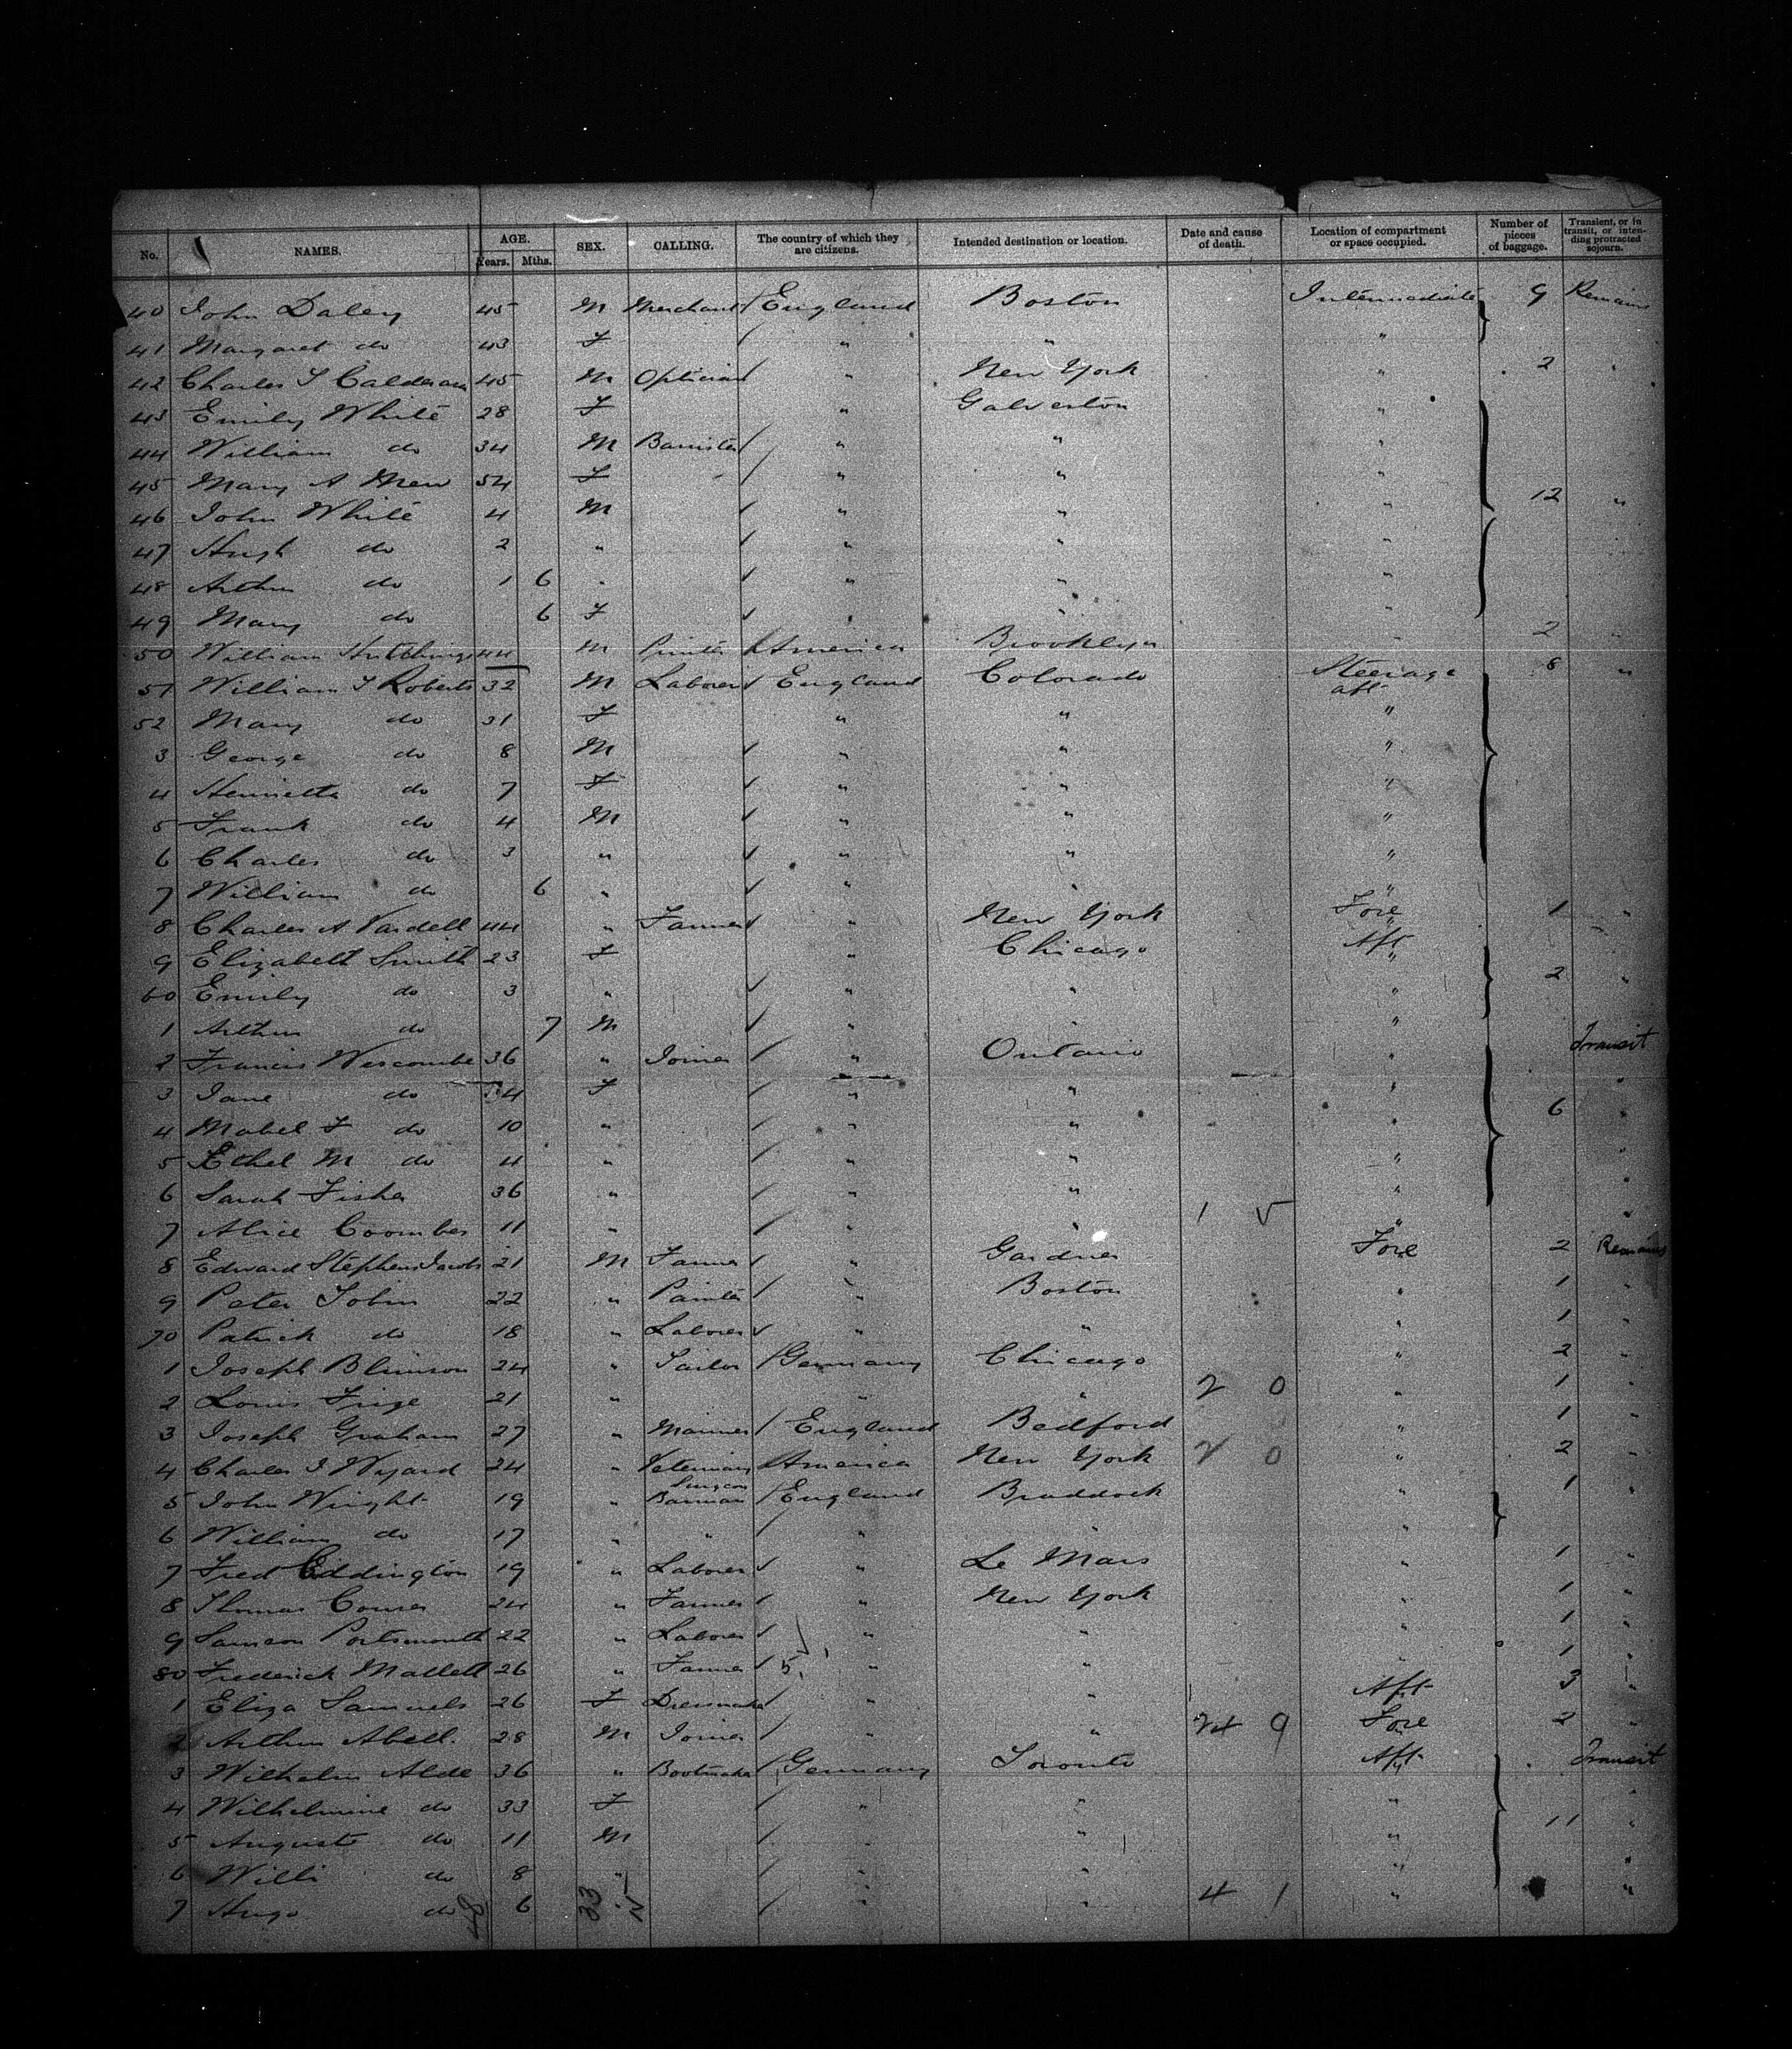 No. NAMES. AGE. Years. Mths. SEX. CALLING. The country of which they are citizens. Intended destination or location. Date and cause of death. Location of compartment or space occupied. Number of pieces of baggage. Transient, or in transit, or intending protracted sojourn.
40 John Daley 45 M Merchant England Boston Intermediate 9 Remains
41 Margaret do 43 F " " "
42 Charles 45 M Optician " New York " 2 "
43 Emily White 28 F " Galveston "
44 William do 34 M Barrister " " "
45 Mary A Mew 54 F " " "
46 John White 4 M " " " 12 "
47 Hugh do 2 " " " "
48 Arthur do 1 6 " " " "
49 Mary do 6 F " " "
50 William Hutchings 44 M Printer America Brooklyn " 2 "
51 William T Roberts 32 M Laborer England Colorado Steerage aft 8 "
52 Mary do 31 F " " "
3 George do 8 M " " "
4 Henrietta do 7 F " " "
5 Frank do 4 M " " "
6 Charles do 3 " " " "
7 William do 6 " " " "
8 Charles A Vardell 44 " Farmer " New York Fore 1 "
9 Elizabeth Smith 23 F " Chicago Aft
60 Emily do 3 " " " " 2 "
1 Arthur do 7 M " " "
2 Francis Wescombe 36 " Joiner " Ontario " Transit
3 Jane do 34 F " " " "
4 Mabel F do 10 " " " " 6 "
5 Ethel M do 4 " " " " "
6 Sarah Fisher 36 " " " " "
7 Alice Coombes 11 " " " 1 " "
8 Edward Stephens Jacobs 21 M Farmer " Gardner Fore 2 Remains
9 Peter Tobin 22 " Painter " Boston " 1 "
70 Patrick do 18 " Laborer " " " 1 "
1 Joseph Blimson 24 " Tailor Germany Chicago " 2 "
2 Louis Frige 21 " " " 2 0 " 1 "
3 Joseph Graham 27 " Mariner England Bedford " 1 "
4 Charles J Wyard 24 " Veterinary Surgeon America New York 2 0 " 2 "
5 John Wright 19 " Barman England Braddock " 1 "
6 William do 17 " " " " "
7 Fred Eddington 19 " Laborer " Le Mars " 1 "
8 Thomas 24 " Farmer " New York " 1 "
9 Samson Portsmouth 22 " Laborer " " " 1 "
80 Frederick Mallett 26 " Farmer 5 " " " 1 "
1 Eliza Samuels 26 F Dressmaker " " Aft 3 "
2 Arthur Abell. 28 M Joiner " " 24 9 Fore 2 "
3 Wilhelm Alde 36 " Bootmaker Germany Toronto Aft Transit
4 Wilhelmine do 33 F " " "
5 Auguste do 11 M " " " 11 "
6 Willi do 8 " " " " "
7 Hugo do 6 " " " 4 1 " "
33